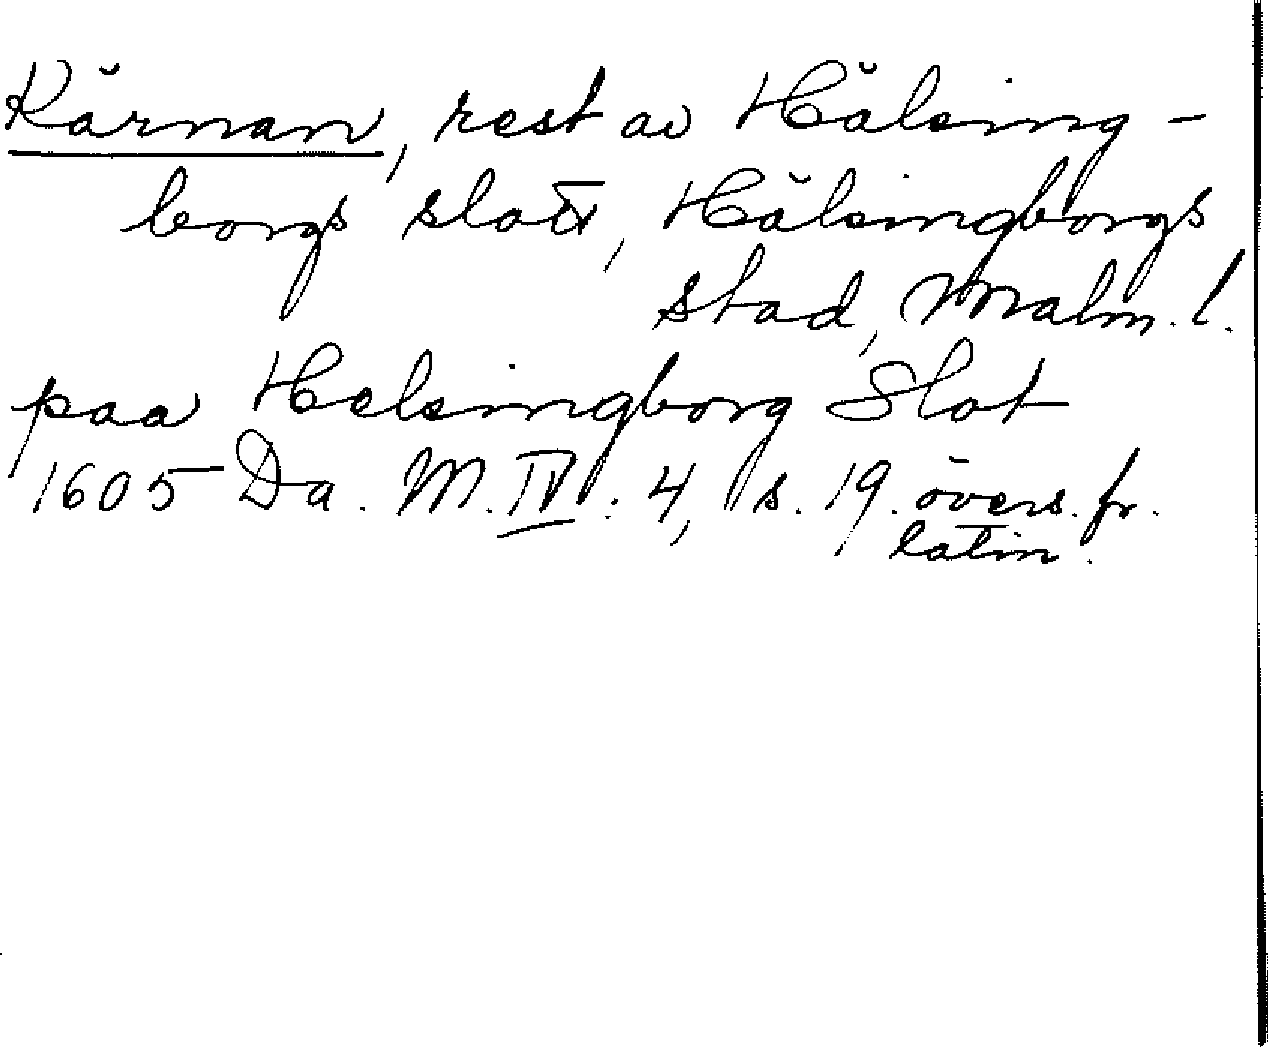 Kärnan, rest av Hälsing-
borgs slott, Hälsingborgs
stad, Malm. l.
paa Helsingborg Slot
1605 Da. M. IV: 4, s. 19. övers. fr.
latin.